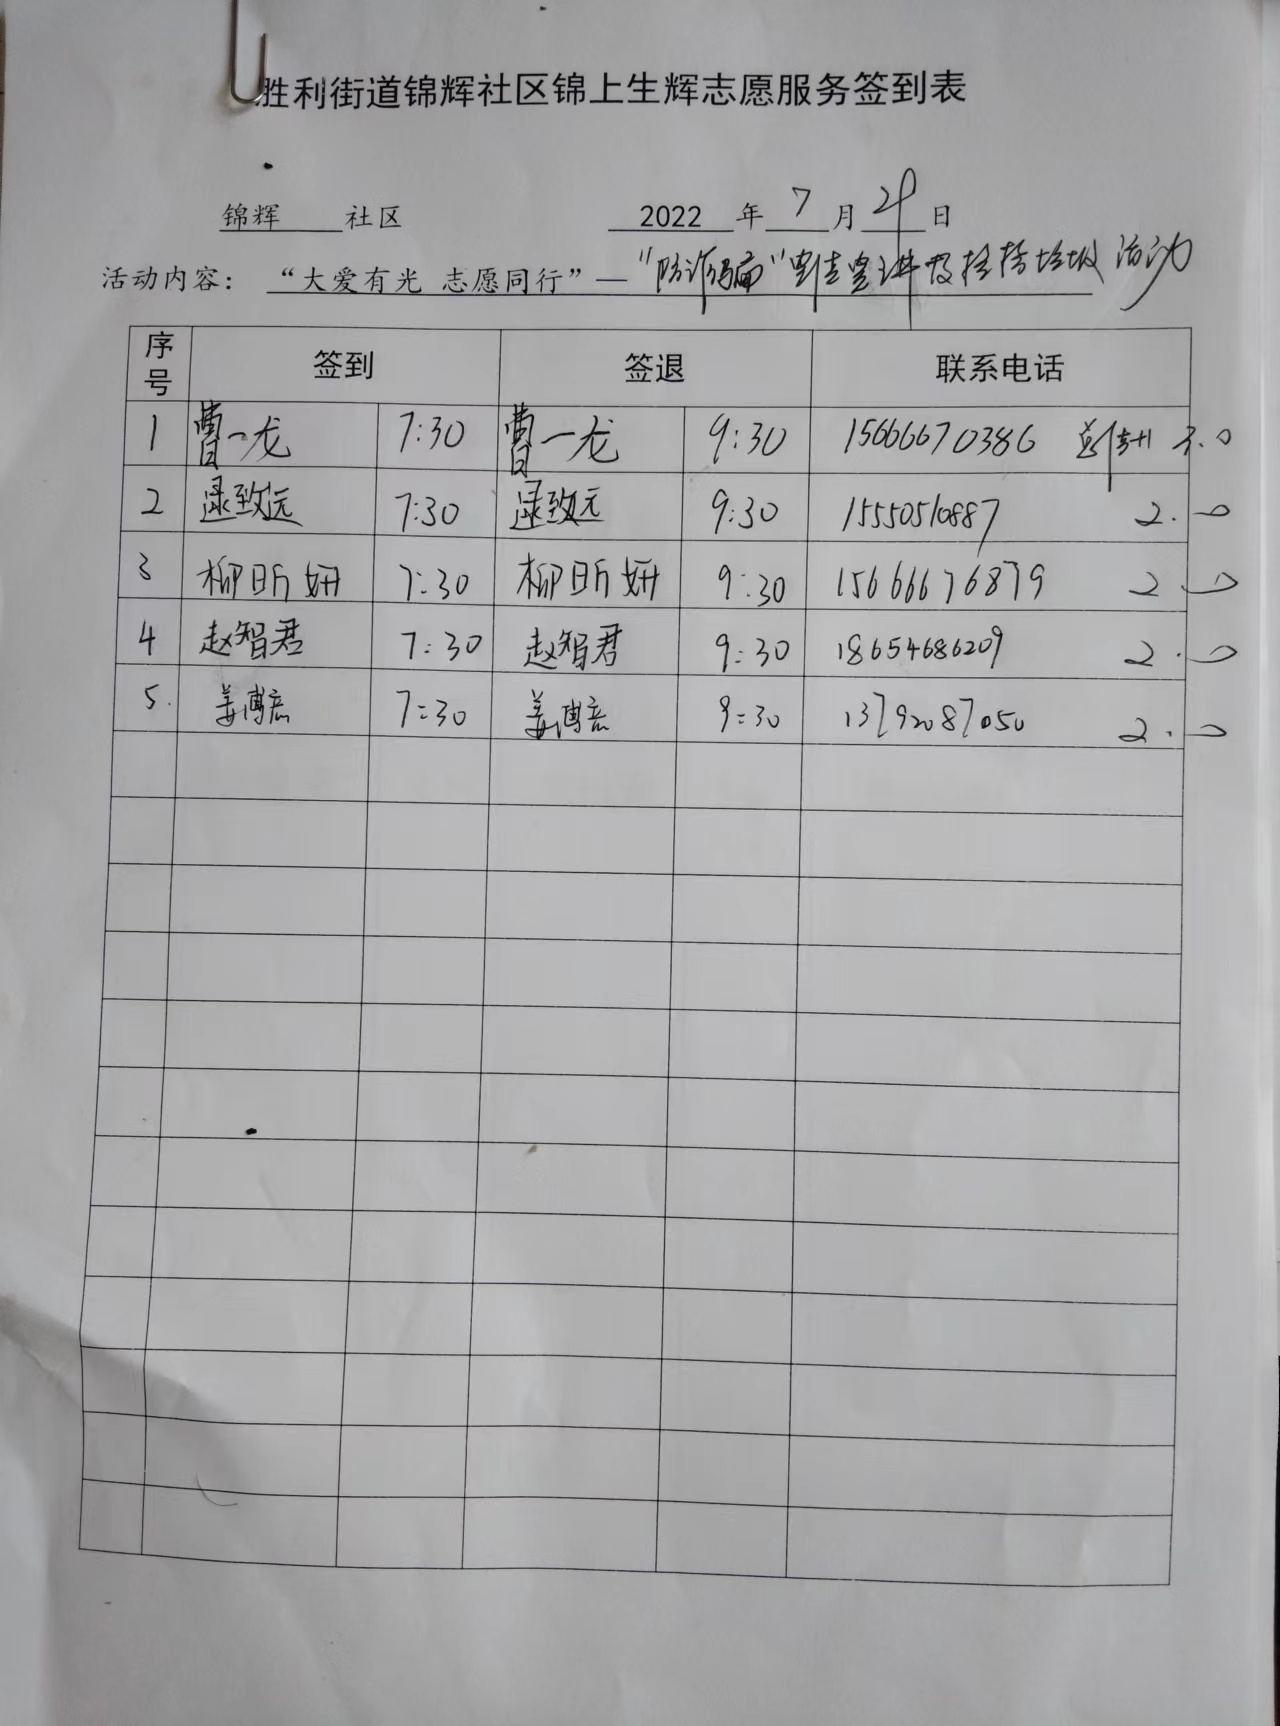 胜利街道锦辉社区锦上生辉志愿服务签到表
锦辉 社区 2022 年 7 月 21 日
活动内容： “大爱有光 志愿同行”— “防诈骗” 宣讲及捡拾垃圾活动
序号 签到 签退 联系电话
1 曹一龙 7:30 曹一龙 9:30 15666670386 3.0
2 逯致远 7:30 逯致远 9:30 15550510887 2.0
3 柳昕妍 7:30 柳昕妍 9:30 15666676879 2.0
4 赵智君 7:30 赵智君 9:30 18654686209 2.0
5. 姜博彦 7:30 姜博彦 9:30 13792087050 2.0